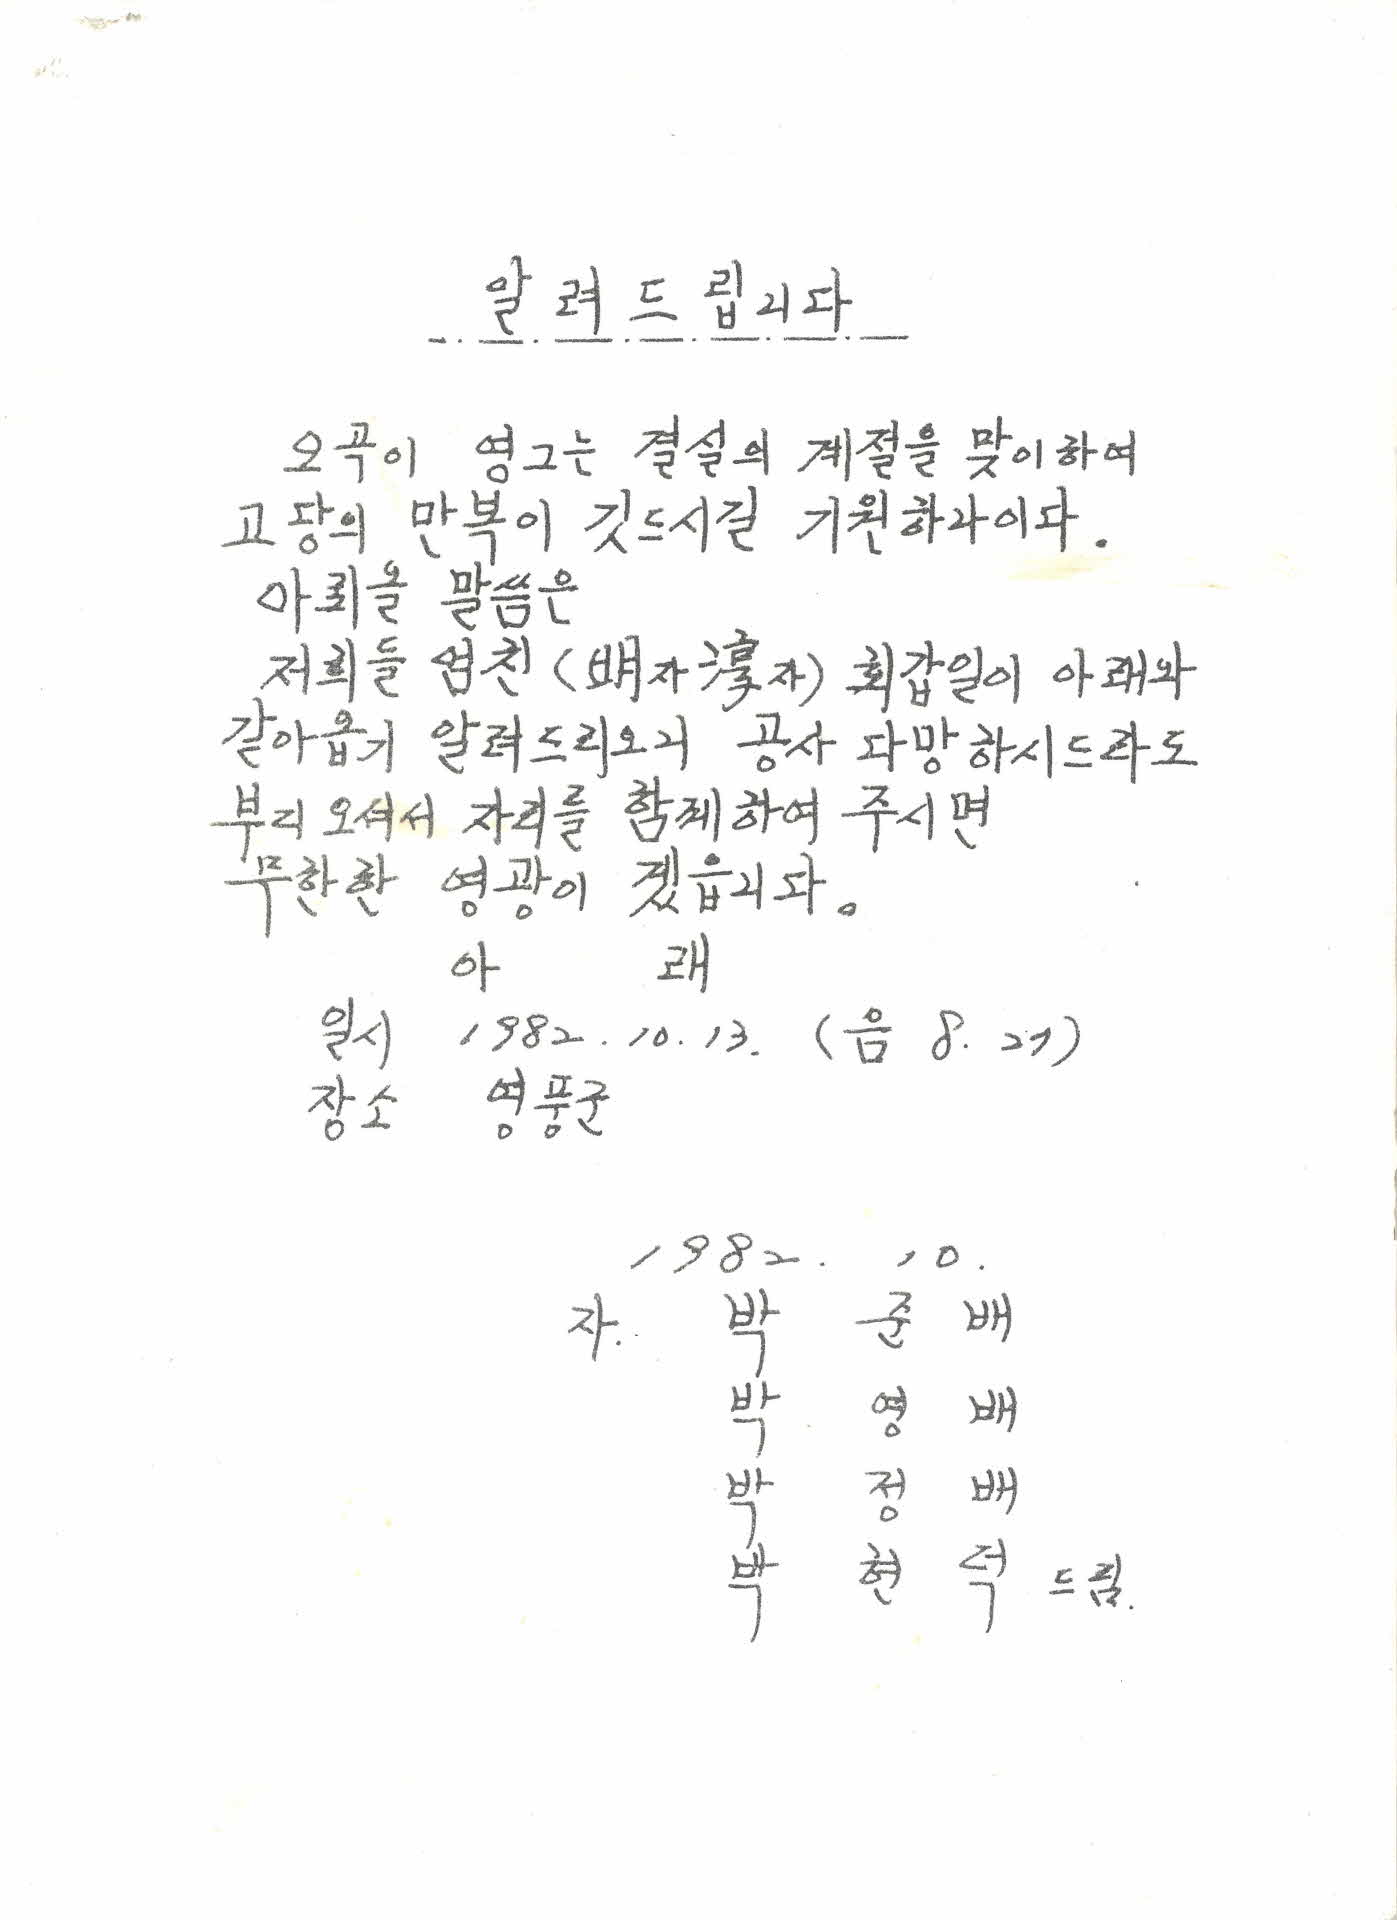 알려드립니다
오곡이 영그는 결실의 계절을 맞이하여
고당의 만복이 깃드시길 기원하나이다.
아뢰올 말씀은
저희들 엄친 (자 자) 회갑일이 아래와
같아옵기 알려드리오니 공사 다망하시드라도
부디 오셔서 자리를 함께하여 주시면
무한한 영광이 겠읍니다。
아 래
일시 1982. 10. 13. (음 8. 27)
장소 영풍군
1982. 10.
자. 박 준 배
박 영 배
박 정 배
박 현 덕 드림.